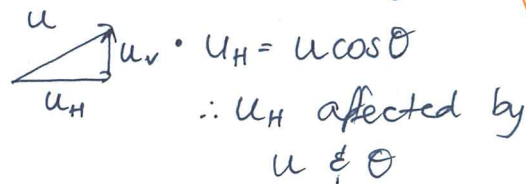 u
u_v • u_H = u cos θ
u_H ∴ u_H affected by
u & θ